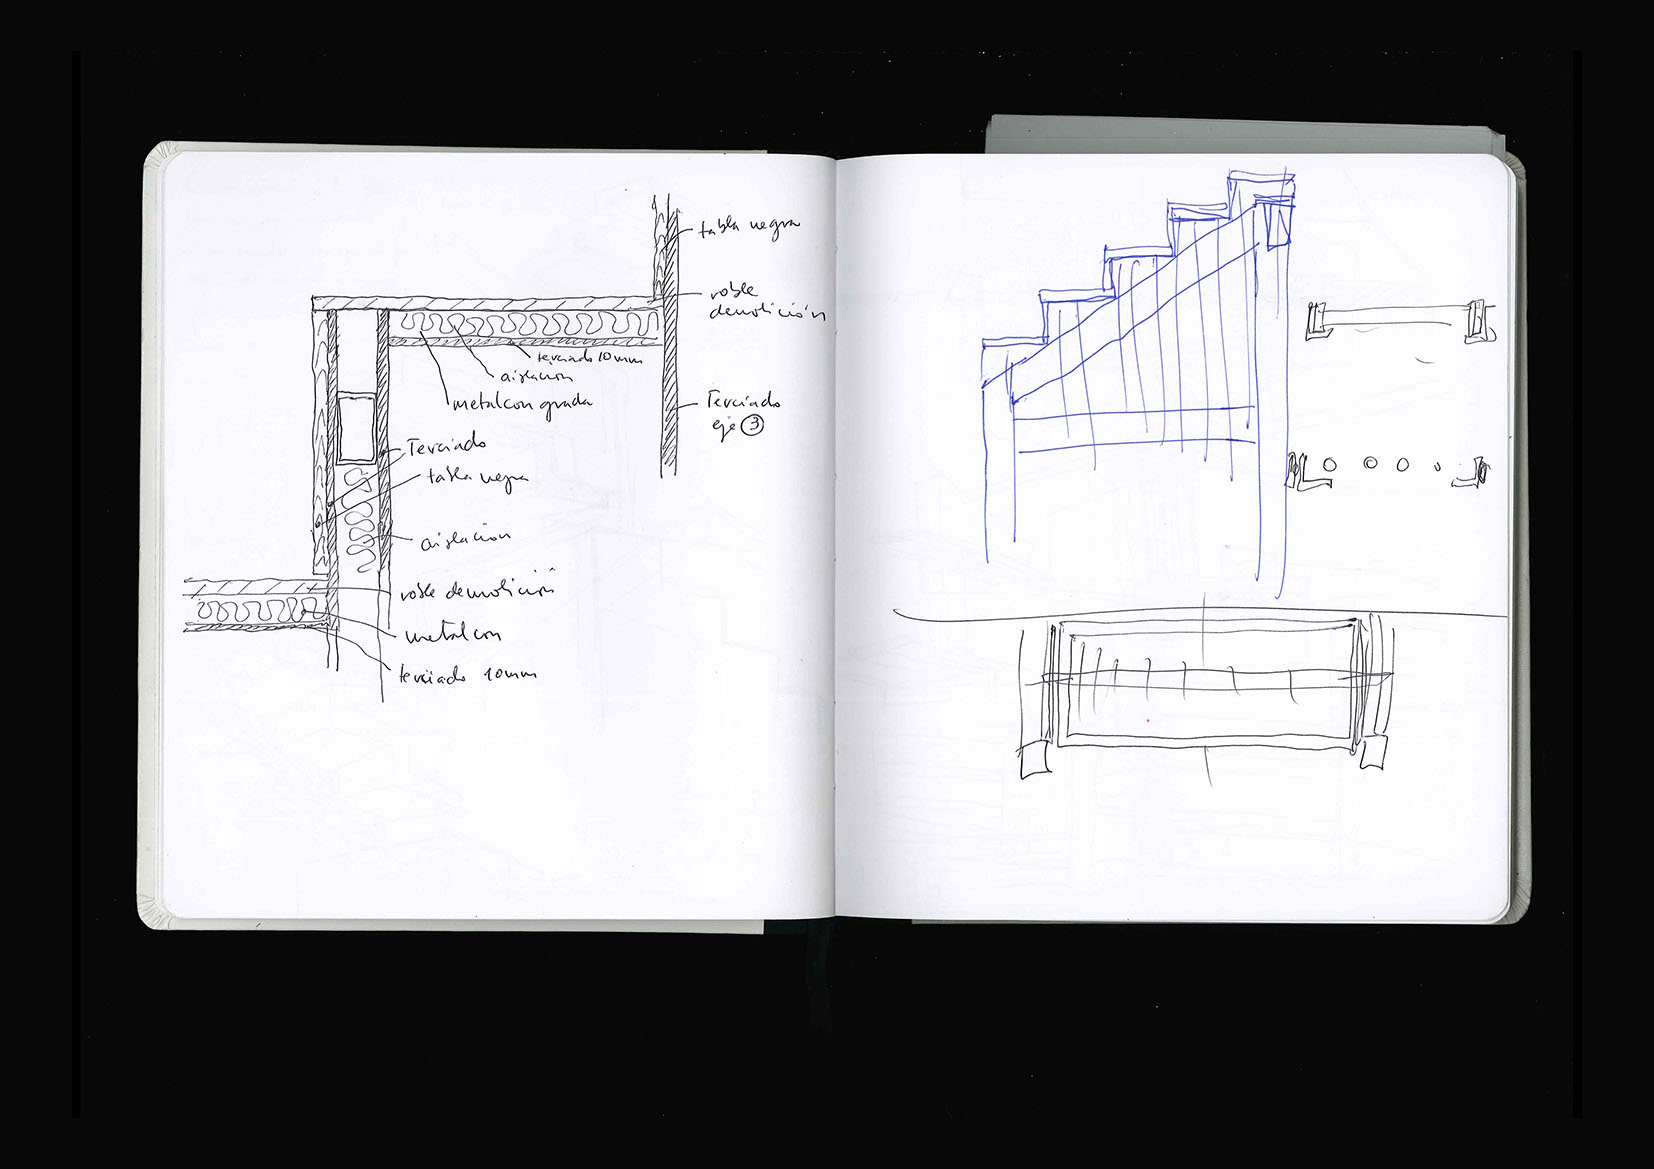 tabla negra
roble
demolición
terciado 10mm
aislacion
metalcon grada
Terciado
eje 3
Terciado
tabla negra
aislacion
roble demolición
metalcon
terciado 10mm